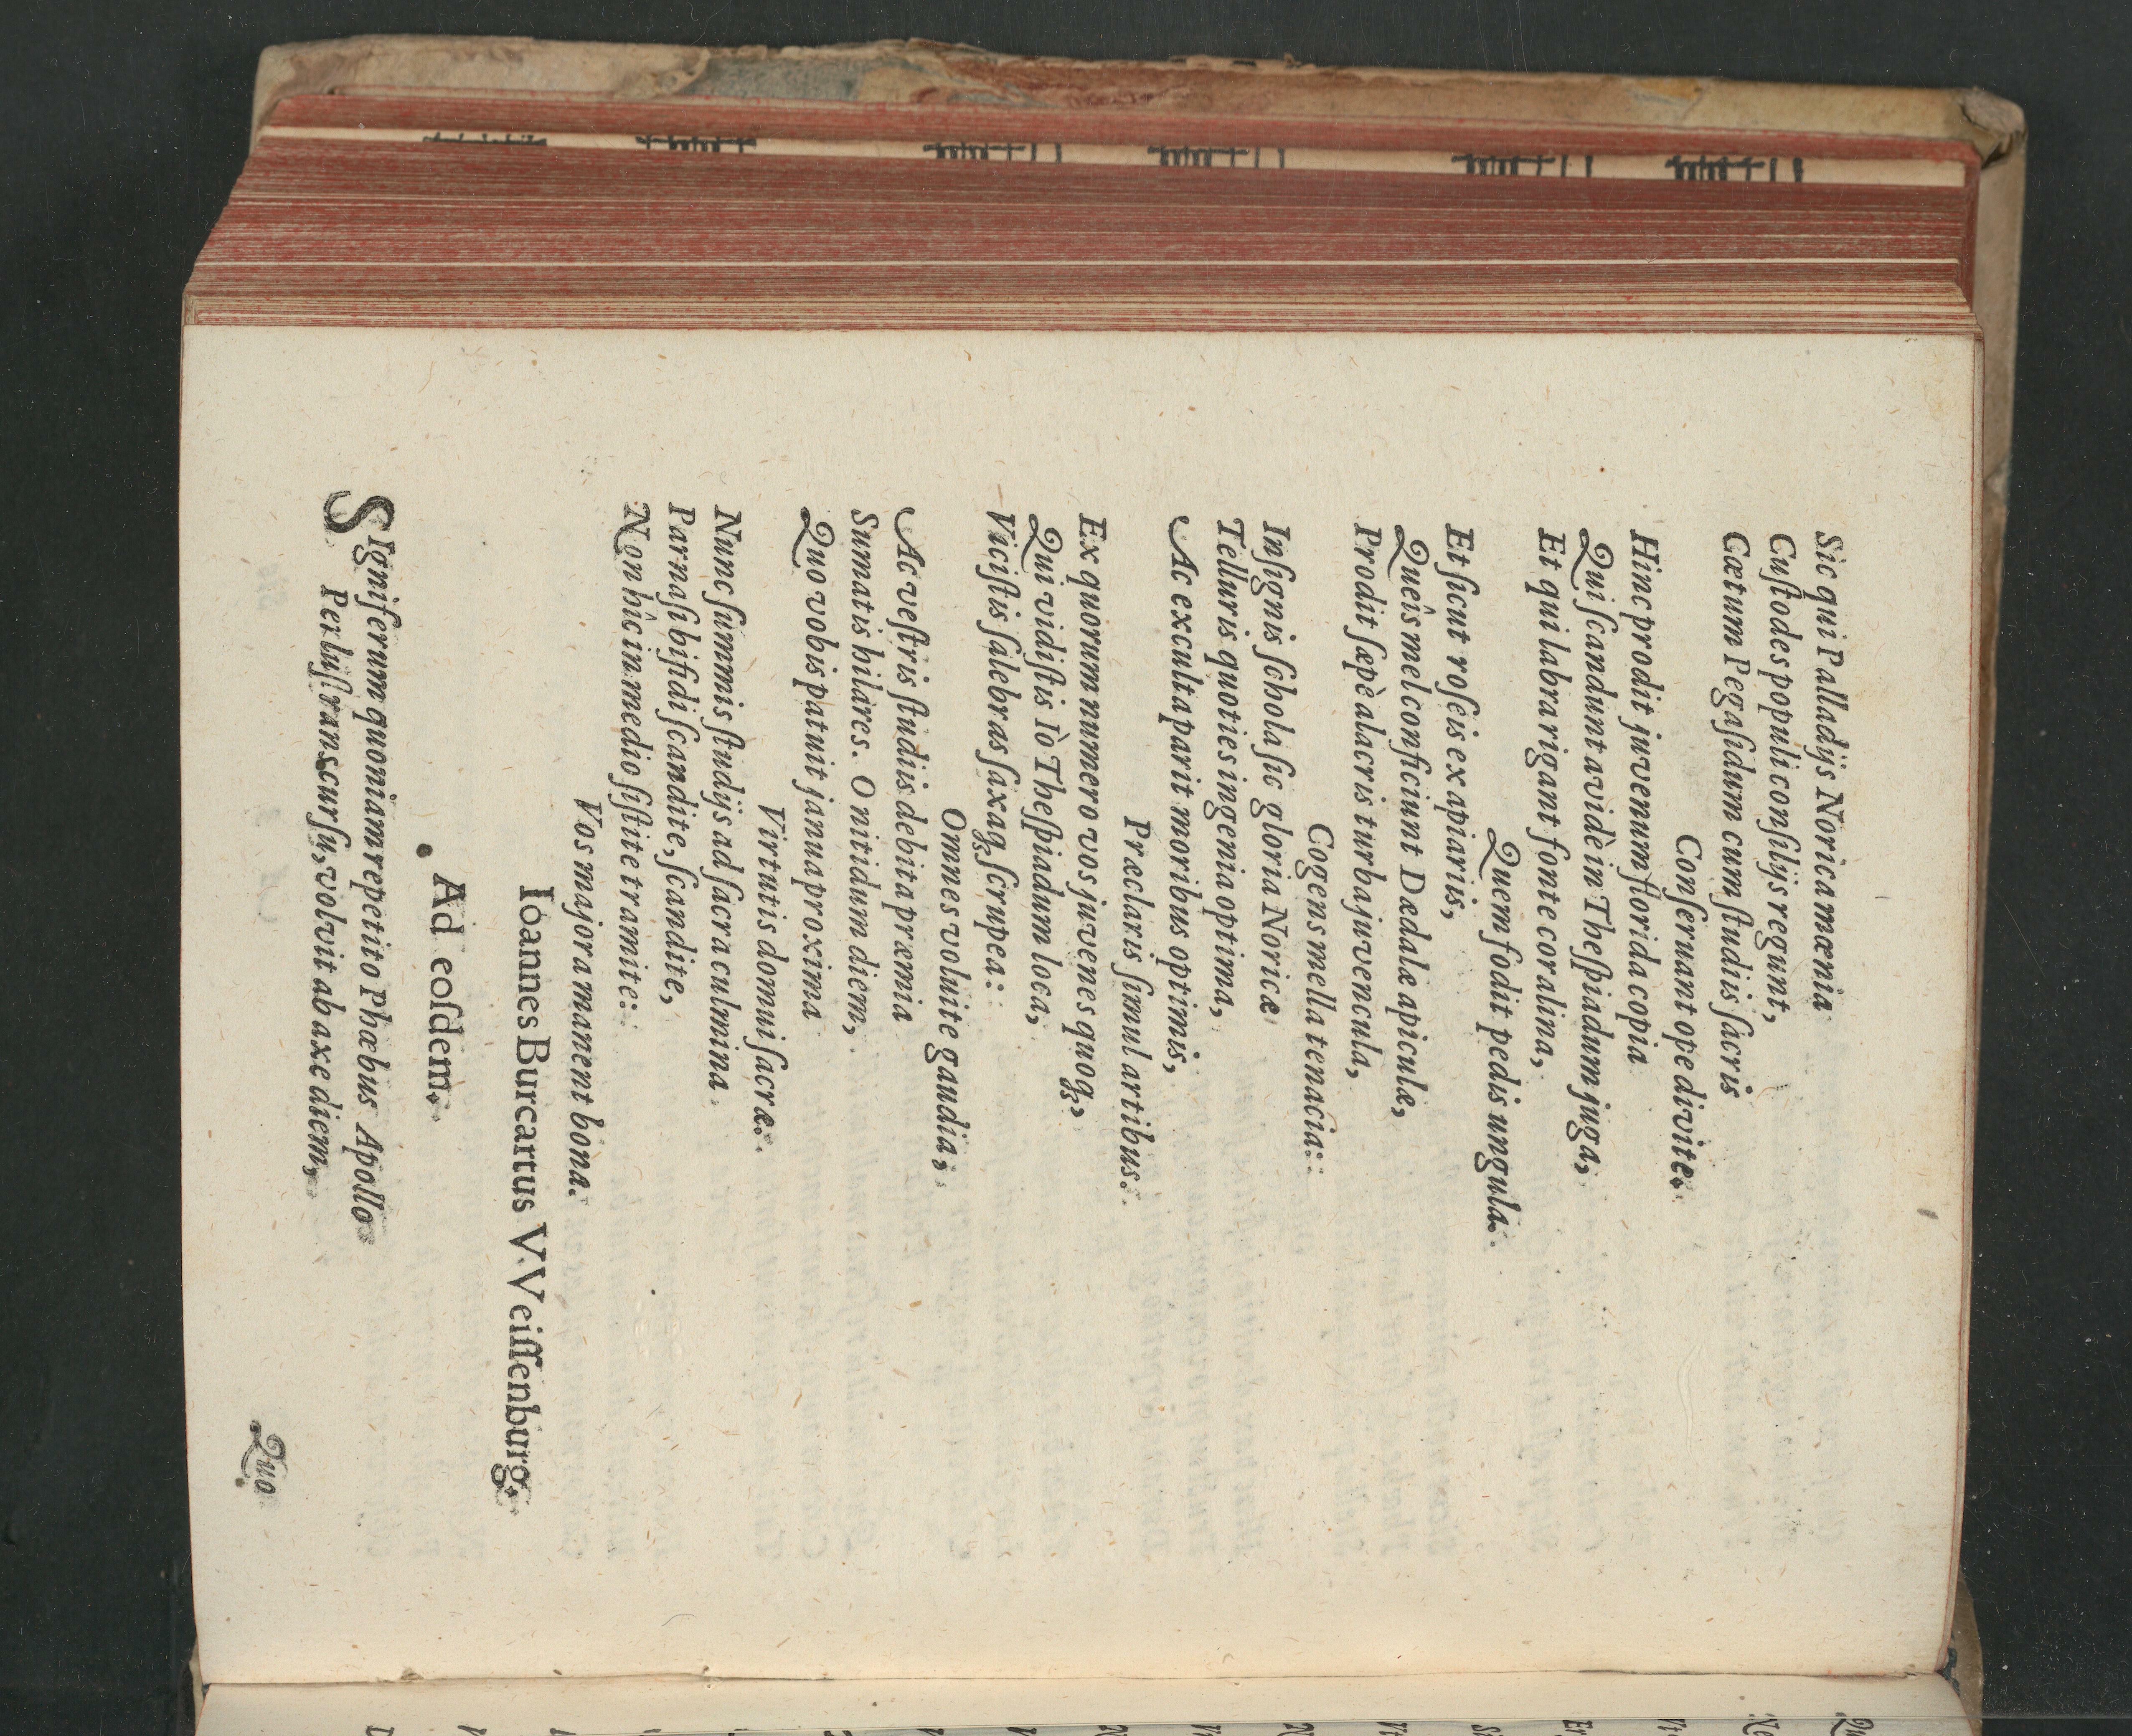 Sic qui Palladijs Norica mœnia
Cuſtodes populi conſilijs regunt,
Cœtum Pegaſidum cum ſtudiis ſacris
Conſervant ope divite.
Hinc prodit juvenum florida copia
Qui ſcandunt avidè in Theſpiadum juga,
Et qui labra rigant fonte coralina,
Quem fodit pedis ungula.
Et ſicut roſeis ex apiariis,
Queîs mel conficiunt Dædalæ apiculæ,
Prodit ſæpè alacris turba juvencula,
Cogens mella tenacia:
Inſignis ſchola ſic gloria Noricæ
Telluris quoties ingenia optima,
Ac exculta parit moribus optimis,
Præclaris ſimul artibus.
Ex quorum numero vos juvenes quoqꝫ,
Qui vidiſtis Iò Theſpiadum loca,
Viciſtis ſalebras ſaxaqꝫ ſcrupea:
Omnes voluite gaudia,
Ac veſtris ſtudiis debita præmia
Sumatis hilares. O nitidum diem,
Quo vobis patuit janua proxima
Virtutis domui ſacræ.
Nunc ſummis ſtudijs ad ſacra culmina
Parnaſi bifidi ſcandite, ſcandite,
Non hîc in medio ſiſtite tramite:
Vos majora manent bona.
Ioannes Burcartus VVeiſſenburg.
Ad eoſdem.
SIgniferum quoniam repetito Phœbus Apollo
Perluſtrans curſu, volvit ab axe diem,
Quo